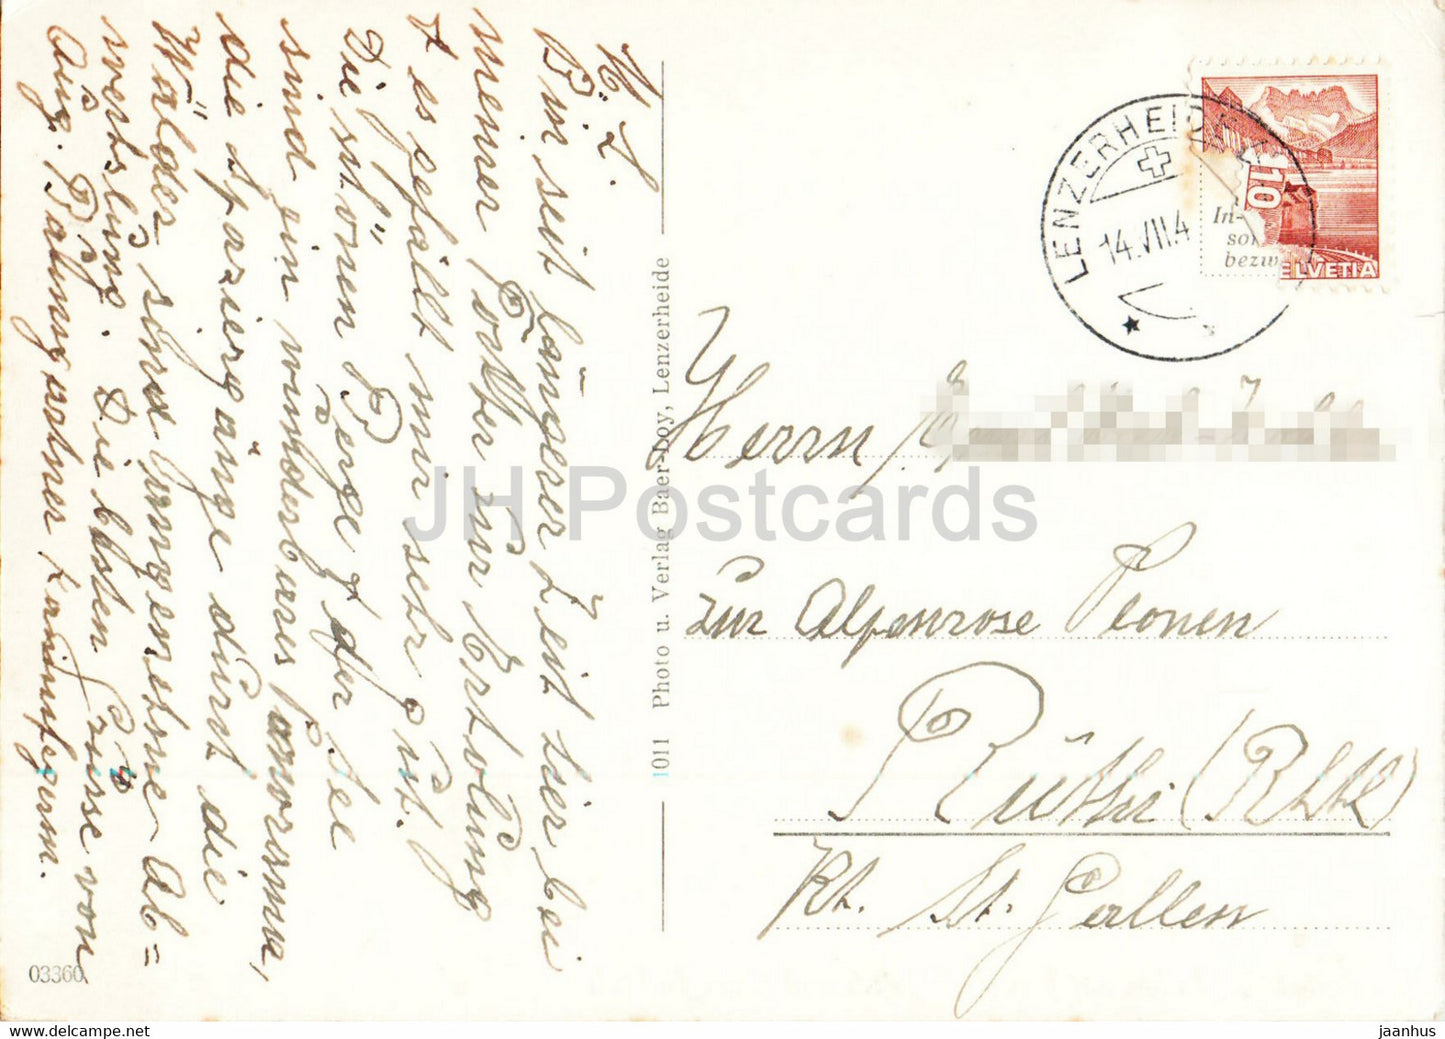 M. L.
Bin seit längerer Zeit hier bei
meiner Tochter zur Erholung
& es gefällt mir sehr gut.
Die schönen Berge & der See
sind ein wunderbares Panorama,
die Spaziergänge durch die
Wälder sind angenehme Ab=
wechslung. Die besten Grüsse von
Aug. Baumgartner
03360
1011 Photo u. Verlag Baer-Loy, Lenzerheide
LENZERHEIDE
14.VII.4
In-
sol
bezw
10
HELVETIA
Herrn
zur Alpenrose
Rüthi (Rhtl)
Kt. St. Gallen
JH Postcards
jaanhus